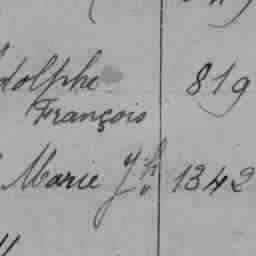 dolphe 819
François
Marie Jh 1342